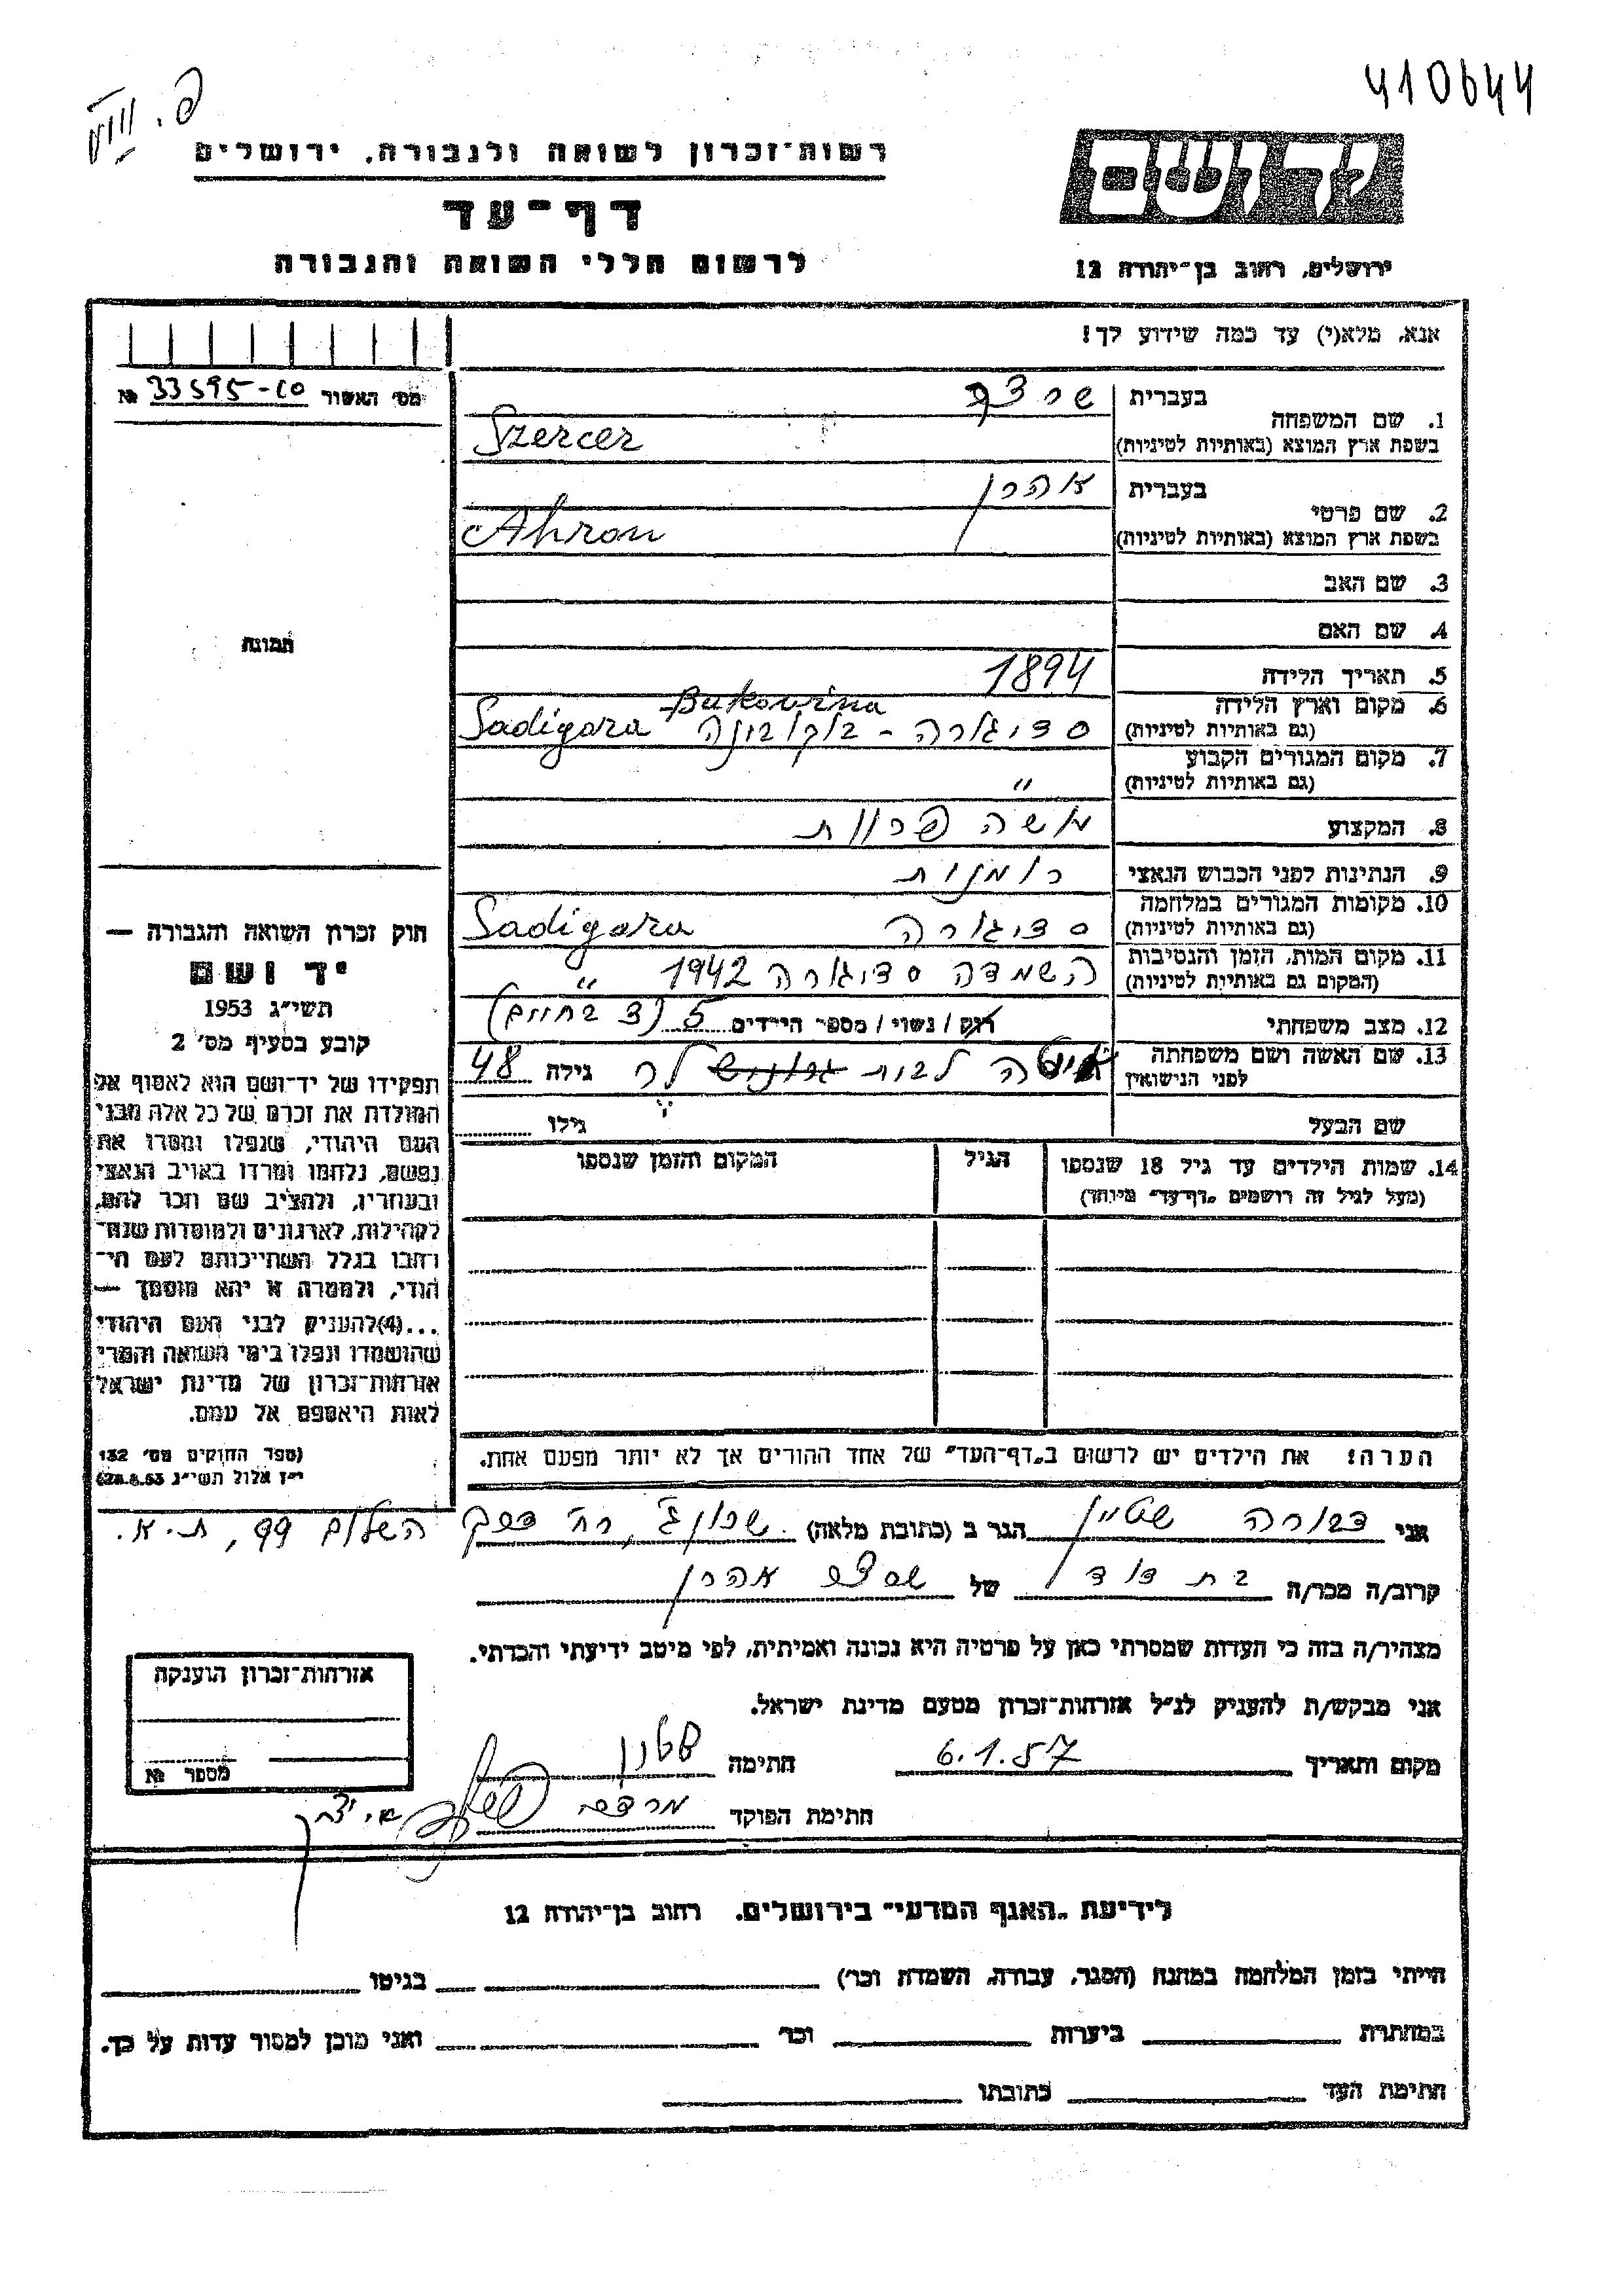 410644
פ. VIII
יד ושם
רשות־זכרון לשואה ולגבורה, ירושלים
דף־עד
לרשום חללי השואה והגבורה
ירושלים, רחוב בן־יהודה 12
אנא, מלא(י) עד כמה שידוע לך!
מס׳ האשור № 33595-co
1. שם המשפחה
בעברית
בשפת ארץ המוצא (באותיות לטיניות) Szercer
2. שם פרטי
בעברית אהרן
בשפת ארץ המוצא (באותיות לטיניות) Ahron
3. שם האב
4. שם האם
5. תאריך הלידה 1894
6. מקום וארץ הלידה (גם באותיות לטיניות) סדיגורה - בוקובינה Sadigora - Bukovina
7. מקום המגורים הקבוע (גם באותיות לטיניות) "
8. המקצוע עושה פרוות
9. הנתינות לפני הכבוש הנאצי רומנית
10. מקומות המגורים במלחמה (גם באותיות לטיניות) סדיגורה Sadigora
11. מקום המות, הזמן והנסיבות (המקום גם באותיות לטיניות) השמדה סדיגורה 1942 "
12. מצב משפחתי רוק / נשוי / מספר הילדים 5 (2 בחיים)
13. שם האשה ושם משפחתה לפני הנישואין לבית גילה 48
שם הבעל גילו
14. שמות הילדים עד גיל 18 שנספו (מעל לגיל זה רושמים „דף־עד״ מיוחד)
הגיל
המקום והזמן שנספו
הערה! את הילדים יש לרשום ב„דף־העד״ של אחד ההורים אך לא יותר מפעם אחת.
תמונה
חוק זכרון השואה והגבורה —
יד ושם
תשי״ג 1953
קובע בסעיף מס׳ 2
תפקידו של יד־ושם הוא לאסוף אל
המולדת את זכרם של כל אלה מבני
העם היהודי, שנפלו ומסרו את
נפשם, נלחמו ומרדו באויב הנאצי
ובעוזריו, ולהציב שם וזכר להם,
לקהילות, לארגונים ולמוסדות שנח־
רבו בגלל השתייכותם לעם הי־
הודי, ולמטרה זו יהא מוסמך —
...(4)להעניק לבני העם היהודי
שהושמדו ונפלו בימי השואה והמרי
אזרחות־זכרון של מדינת ישראל
לאות היאספם אל עמם.
(ספר החוקים מס׳ 132
י״ז אלול תשי״ג 28.8.53)
אני דבורה שטיין הגר ב (כתובת מלאה) דרך השלום 99, ת.א.
קרוב/ה מכר/ה בת דוד של אהרן
מצהיר/ה בזה כי העדות שמסרתי כאן על פרטיה היא נכונה ואמיתית, לפי מיטב ידיעתי והכרתי.
אני מבקש/ת להעניק לנ״ל אזרחות־זכרון מטעם מדינת ישראל.
מקום ותאריך 6.1.57 חתימה
חתימת הפוקד
אזרחות־זכרון הוענקה
מספר №
לידיעת „האגף המדעי״ בירושלים. רחוב בן־יהודה 12
הייתי בזמן המלחמה במחנה (הסגר, עבודה, השמדה וכו׳) בגיטו
במחתרת ביערות וכו׳ ואני מוכן למסור עדות על כך.
חתימת העד כתובתו